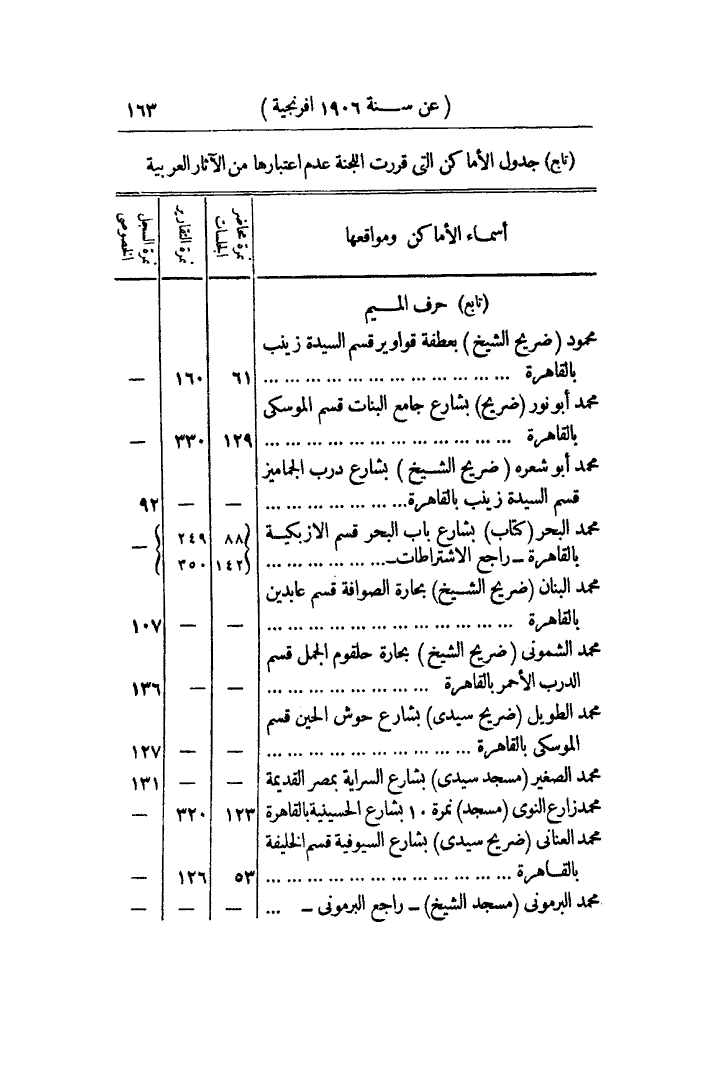 (عن سنة ١٩٠٦ افرنجية) ١٦٣
(تابع) جدول الأماكن التى قررت اللجنة عدم اعتبارها من الآثار العربية
أسماء الأماكن ومواقعها نمرة محاضر الجلسات نمرة التقارير نمرة السجل الخصوصى
(تابع) حرف الميم
محمود (ضريح الشيخ) بعطفة قواوير قسم السيدة زينب
بالقاهرة ... ... ... ... ... ... ... ... ... ... ... ... ٦١ ١٦٠ —
محمد أبو نور (ضريح) بشارع جامع البنات قسم الموسكى
بالقاهرة ... ... ... ... ... ... ... ... ... ... ... ... ١٢٩ ٣٣٠ —
محمد أبو شعره (ضريح الشيخ) بشارع درب الجماميز
قسم السيدة زينب بالقاهرة... ... ... ... ... ... ... — — ٩٢
محمد البحر (كتاب) بشارع باب البحر قسم الازبكية {٨٨ ٢٤٩} —
بالقاهرة ـ راجع الاشتراطات ـ... ... ... ... ... ... {١٤٢ ٣٥٠}
محمد البنان (ضريح الشيخ) بحارة الصوافة قسم عابدين
بالقاهرة ... ... ... ... ... ... ... ... ... ... ... ... — — ١٠٧
محمد الشمونى (ضريح الشيخ) بحارة حلقوم الجمل قسم
الدرب الأحمر بالقاهرة ... ... ... ... ... ... ... ... — — ١٣٦
محمد الطويل (ضريح سيدى) بشارع حوش الحين قسم
الموسكى بالقاهرة ... ... ... ... ... ... ... ... ... ... — — ١٢٧
محمد الصغير (مسجد سيدى) بشارع السراية بمصر القديمة — — ١٣١
محمد زارع النوى (مسجد) نمرة ١٠ بشارع الحسينية بالقاهرة ١٢٣ ٣٢٠ —
محمد العنانى (ضريح سيدى) بشارع السيوفية قسم الخليفة
بالقاهرة ... ... ... ... ... ... ... ... ... ... ... ... ٥٣ ١٢٦ —
محمد البرمونى (مسجد الشيخ) ـ راجع البرمونى ـ ... — — —